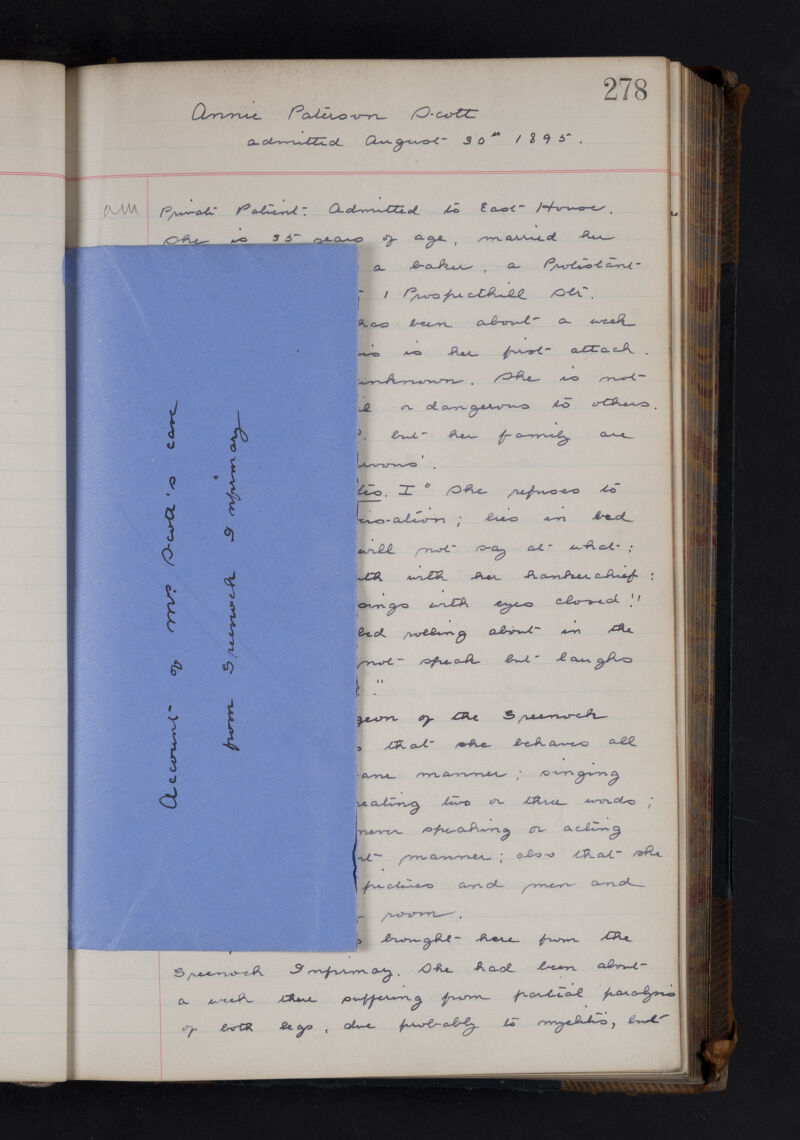 278
Annie Paterson Scott
admitted August 30th 1895.
am
Private Patient. Admitted to East House.
She is 35 years of age, married her
a baker, a Protestant
1 Prospecthill Str.
has been about a week
is her first attack.
unknown. She is not
or dangerous to others.
but her family are
I" She refuses to
lies in bed
will not say at what;
with her hankerchief:
sings with eyes closed!!
bed rolling about in the
not speak but laughs
"
of the Greenock
that she behaves all
manner; singing
two or three words;
never speaking or acting
manner; also that she
pictures and men and
room.
brought here from the
Greenock Infirmary. She had been about
a week there suffering from partial paralysis
of both legs, due probably to myelitis, but
Account of Mrs Scott's case
from Greenock Infirmary